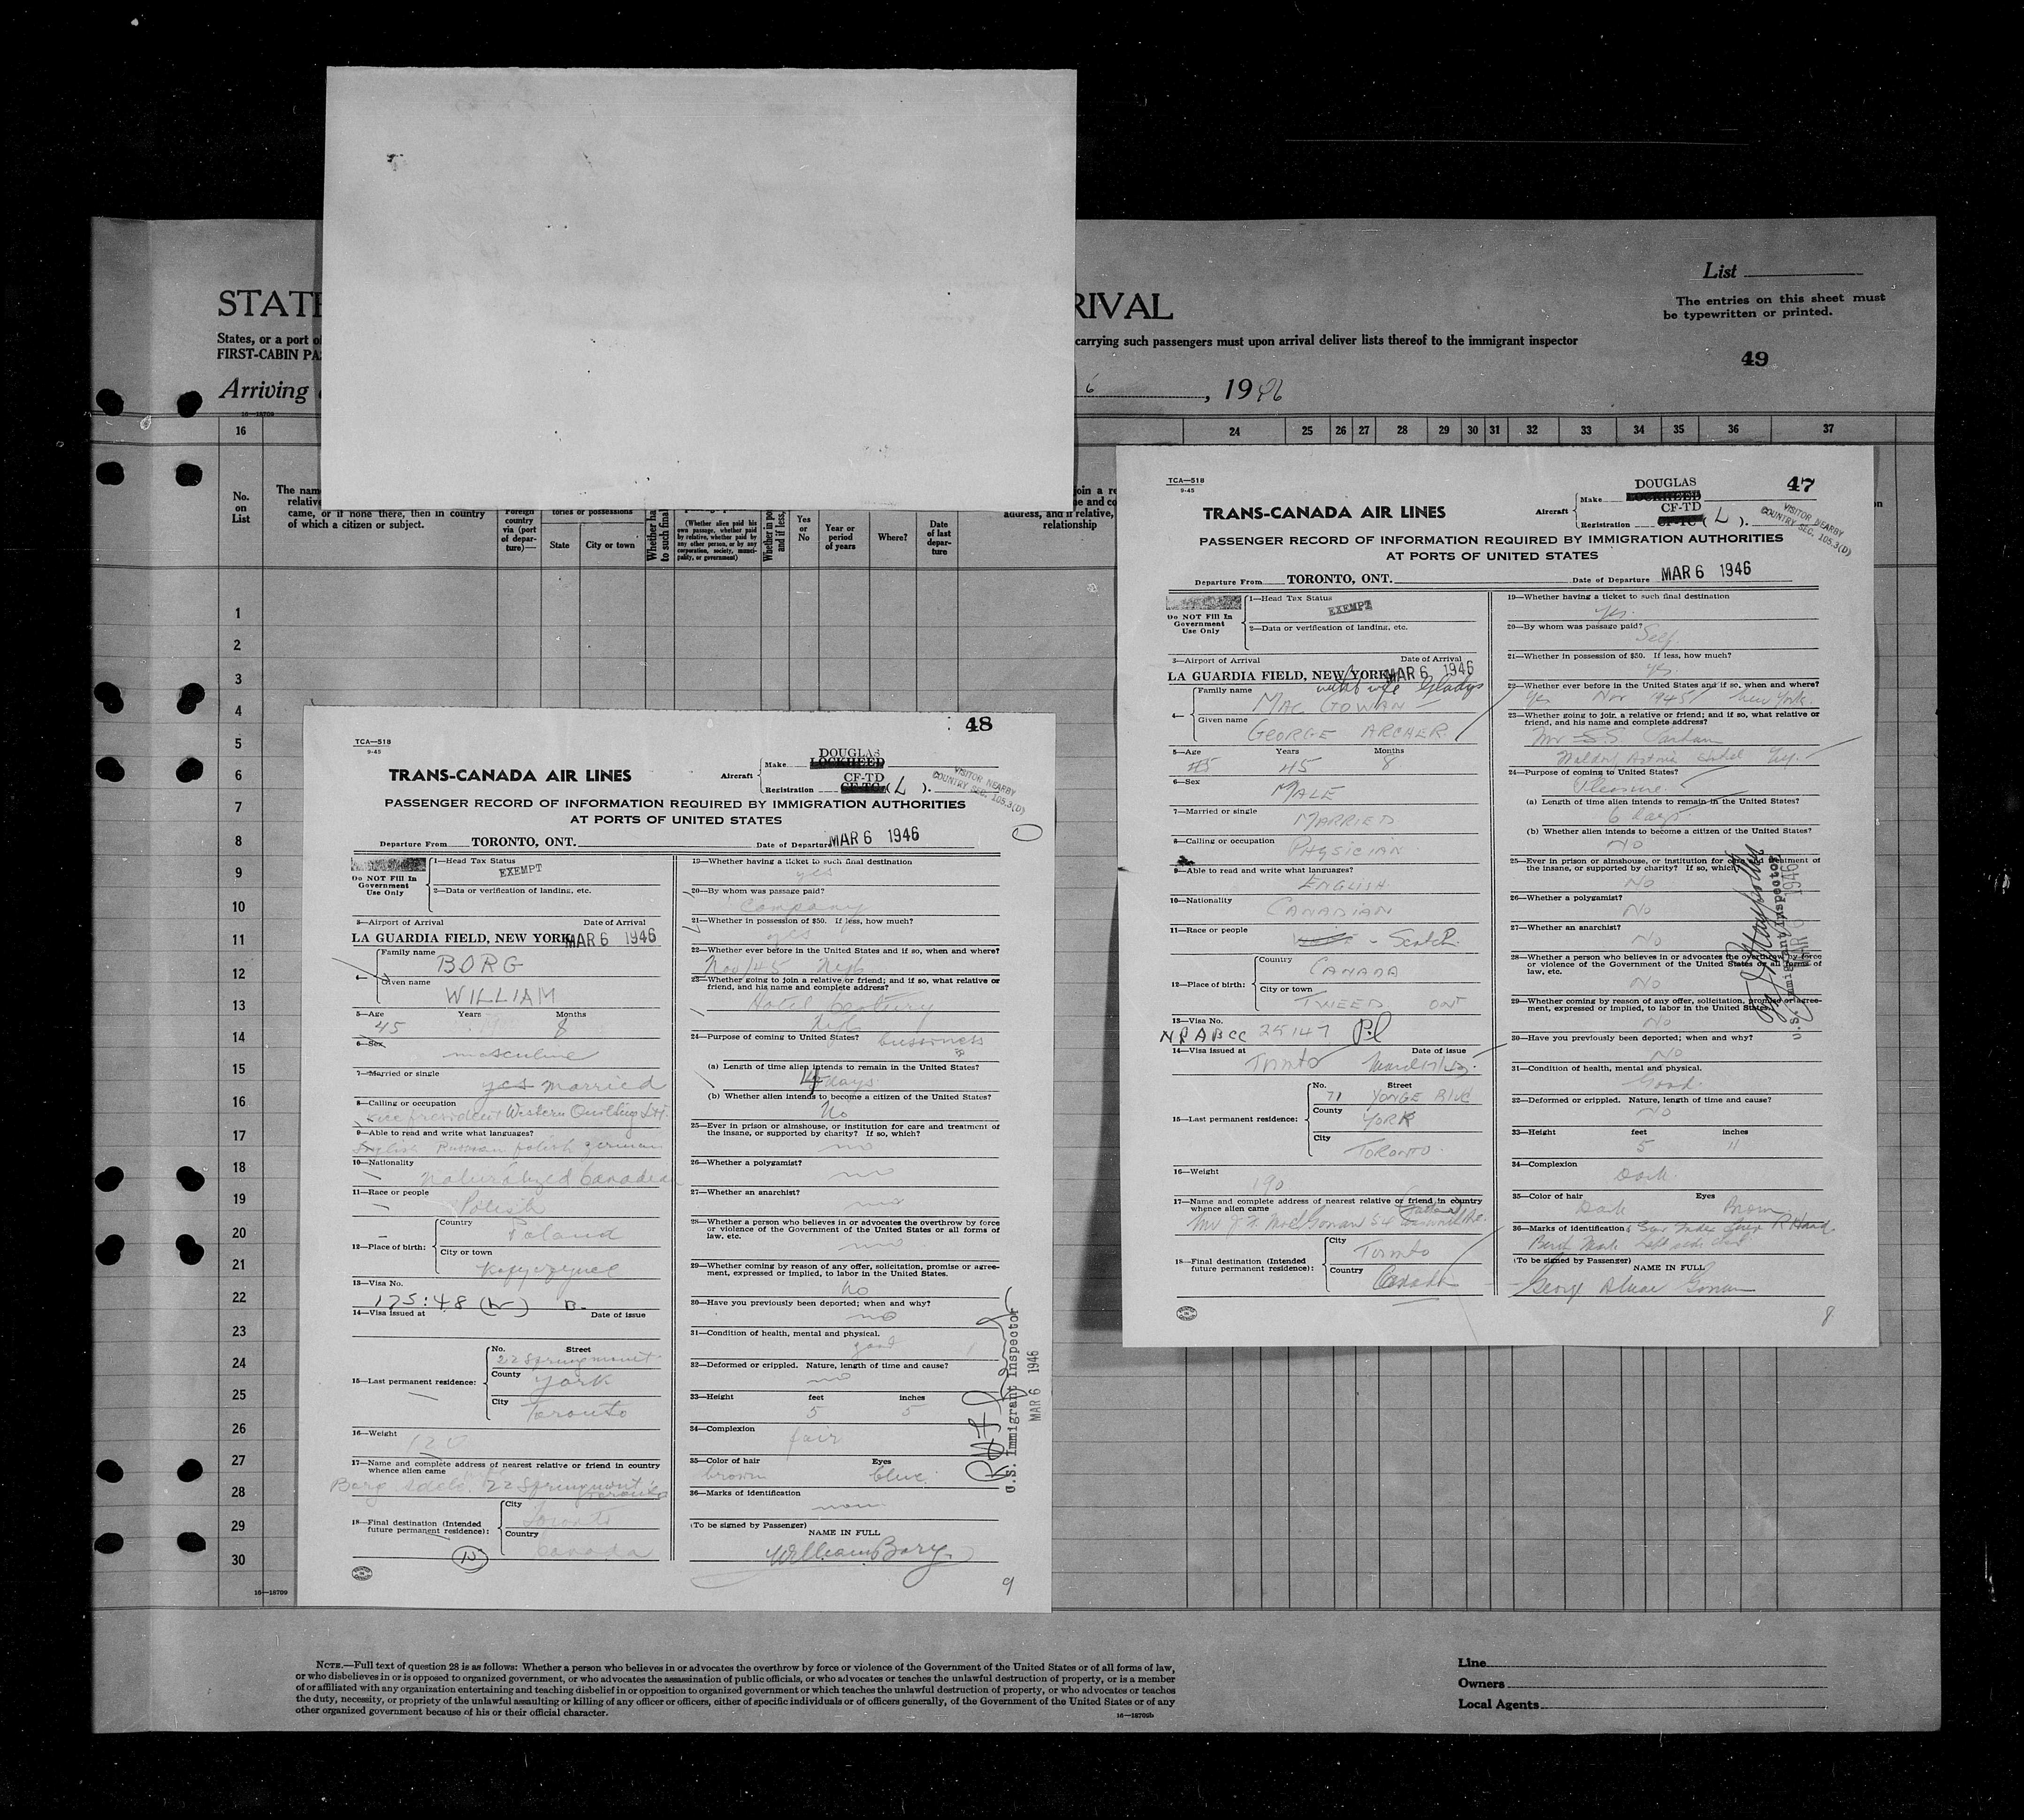 List
The entries on this sheet must
be typewritten or printed.
49
STATE
RIVAL
States, or a port of
carrying such passengers must upon arrival deliver lists thereof to the immigrant inspector
FIRST-CABIN PA
Arriving
6, 1946
16—18709
16
24 25 26 27 28 29 30 31 32 33 34 35 36 37
No.
on
List
The nam
relative
came, or if none there, then in country
of which a citizen or subject.
Foreign
country
via (port
of depar-
ture)—
tories or possessions
State
City or town
Whether ha
to such final
(Whether alien paid his
own passage, whether paid
by relative, whether paid by
any other person, or by any
corporation, society, munici-
pality, or government)
Whether in po
and if less,
Yes
or
No
Year or
period
of years
Where?
Date
of last
depar-
ture
join a re
e and co
address, and if relative,
relationship
1
2
3
4
5
6
7
8
9
10
11
12
13
14
15
16
17
18
19
20
21
22
23
24
25
26
27
28
29
30
16—18709
TCA—518
9-45
47
TRANS-CANADA AIR LINES
Aircraft
Make DOUGLAS
LOCKHEED
Registration CF-TD
CF-TC (L).
VISITOR NEARBY
COUNTRY SEC. 105.3(D)
PASSENGER RECORD OF INFORMATION REQUIRED BY IMMIGRATION AUTHORITIES
AT PORTS OF UNITED STATES
Departure From TORONTO, ONT. Date of Departure MAR 6 1946
Do NOT Fill In
Government
Use Only
1—Head Tax Status
EXEMPT
2—Data or verification of landing, etc.
3—Airport of Arrival Date of Arrival
LA GUARDIA FIELD, NEW YORK MAR 6 1946
with wife Gladys
4—
Family name
MAC GOWAN
Given name
GEORGE ARCHER
5—Age Years Months
45 45 8
6—Sex
MALE
7—Married or single
MARRIED
8—Calling or occupation
PHYSICIAN
9—Able to read and write what languages?
ENGLISH
10—Nationality
CANADIAN
11—Race or people
- Scotch
12—Place of birth:
Country
CANADA
City or town
TWEED ONT
13—Visa No.
NRABCC 25147
14—Visa issued at Date of issue
Toronto
15—Last permanent residence:
No. Street
71 YONGE BLVD
County
YORK
City
TORONTO
16—Weight
190
17—Name and complete address of nearest relative or friend in country
whence alien came
18—Final destination (Intended
future permanent residence):
City
Toronto
Country
Canada
19—Whether having a ticket to such final destination
Yes.
20—By whom was passage paid?
Self
21—Whether in possession of $50. If less, how much?
yes
22—Whether ever before in the United States and if so, when and where?
Yes Nov 1945 New York.
23—Whether going to join a relative or friend; and if so, what relative or
friend, and his name and complete address?
Waldorf Astoria Hotel
24—Purpose of coming to United States?
Pleasure.
(a) Length of time alien intends to remain in the United States?
6 days
(b) Whether alien intends to become a citizen of the United States?
No
25—Ever in prison or almshouse, or institution for care and treatment of
the insane, or supported by charity? If so, which?
No
26—Whether a polygamist?
No
27—Whether an anarchist?
No
28—Whether a person who believes in or advocates the overthrow by force
or violence of the Government of the United States or all forms of
law, etc.
No
29—Whether coming by reason of any offer, solicitation, promise or agree-
ment, expressed or implied, to labor in the United States.
No
30—Have you previously been deported; when and why?
No
31—Condition of health, mental and physical.
Good.
32—Deformed or crippled. Nature, length of time and cause?
No
33—Height feet inches
5 11
34—Complexion
Dark
35—Color of hair Eyes
Dark Brown
36—Marks of identification
(To be signed by Passenger)
NAME IN FULL
8
U.S. Immigrant Inspector
MAR 6 1946
48
TCA—518
9-45
TRANS-CANADA AIR LINES
Aircraft
Make DOUGLAS
LOCKHEED
Registration CF-TD
CF-TC (L).
VISITOR NEARBY
COUNTRY SEC. 105.3(D)
PASSENGER RECORD OF INFORMATION REQUIRED BY IMMIGRATION AUTHORITIES
AT PORTS OF UNITED STATES
Departure From TORONTO, ONT. Date of Departure MAR 6 1946
Do NOT Fill In
Government
Use Only
1—Head Tax Status
EXEMPT
2—Data or verification of landing, etc.
3—Airport of Arrival Date of Arrival
LA GUARDIA FIELD, NEW YORK MAR 6 1946
4—
Family name
BORG
Given name
WILLIAM
5—Age Years Months
45 8
6—Sex
masculine
7—Married or single
yes married
8—Calling or occupation
vice president Western Quilting Ltd.
9—Able to read and write what languages?
English Russian polish german
10—Nationality
naturalized Canadian
11—Race or people
Polish
12—Place of birth:
Country
Poland
City or town
13—Visa No.
175:48 (b) B-
14—Visa issued at Date of issue
15—Last permanent residence:
No. Street
22 Springmount
County
york
City
Toronto
16—Weight
120
17—Name and complete address of nearest relative or friend in country
whence alien came
Borg Adele 22 Springmount Toronto
18—Final destination (Intended
future permanent residence):
City
Toronto
Country
Canada
19—Whether having a ticket to such final destination
yes
20—By whom was passage paid?
Company
21—Whether in possession of $50. If less, how much?
yes
22—Whether ever before in the United States and if so, when and where?
Nov/45
23—Whether going to join a relative or friend; and if so, what relative or
friend, and his name and complete address?
Hotel
24—Purpose of coming to United States? bussiness
(a) Length of time alien intends to remain in the United States?
4 days.
(b) Whether alien intends to become a citizen of the United States?
No
25—Ever in prison or almshouse, or institution for care and treatment of
the insane, or supported by charity? If so, which?
no
26—Whether a polygamist?
no
27—Whether an anarchist?
no
28—Whether a person who believes in or advocates the overthrow by force
or violence of the Government of the United States or all forms of
law, etc.
no
29—Whether coming by reason of any offer, solicitation, promise or agree-
ment, expressed or implied, to labor in the United States.
no
30—Have you previously been deported; when and why?
no
31—Condition of health, mental and physical.
good
32—Deformed or crippled. Nature, length of time and cause?
no
33—Height feet inches
5 5
34—Complexion
fair
35—Color of hair Eyes
brown blue
36—Marks of identification
(To be signed by Passenger)
NAME IN FULL
William Borg
9
U.S. Immigrant Inspector
MAR 6 1946
NOTE.—Full text of question 28 is as follows: Whether a person who believes in or advocates the overthrow by force or violence of the Government of the United States or of all forms of law,
or who disbelieves in or is opposed to organized government, or who advocates the assassination of public officials, or who advocates or teaches the unlawful destruction of property, or is a member
of or affiliated with any organization entertaining and teaching disbelief in or opposition to organized government or which teaches the unlawful destruction of property, or who advocates or teaches
the duty, necessity, or propriety of the unlawful assaulting or killing of any officer or officers, either of specific individuals or of officers generally, of the Government of the United States or of any
other organized government because of his or their official character.
16—18709b
Line
Owners
Local Agents